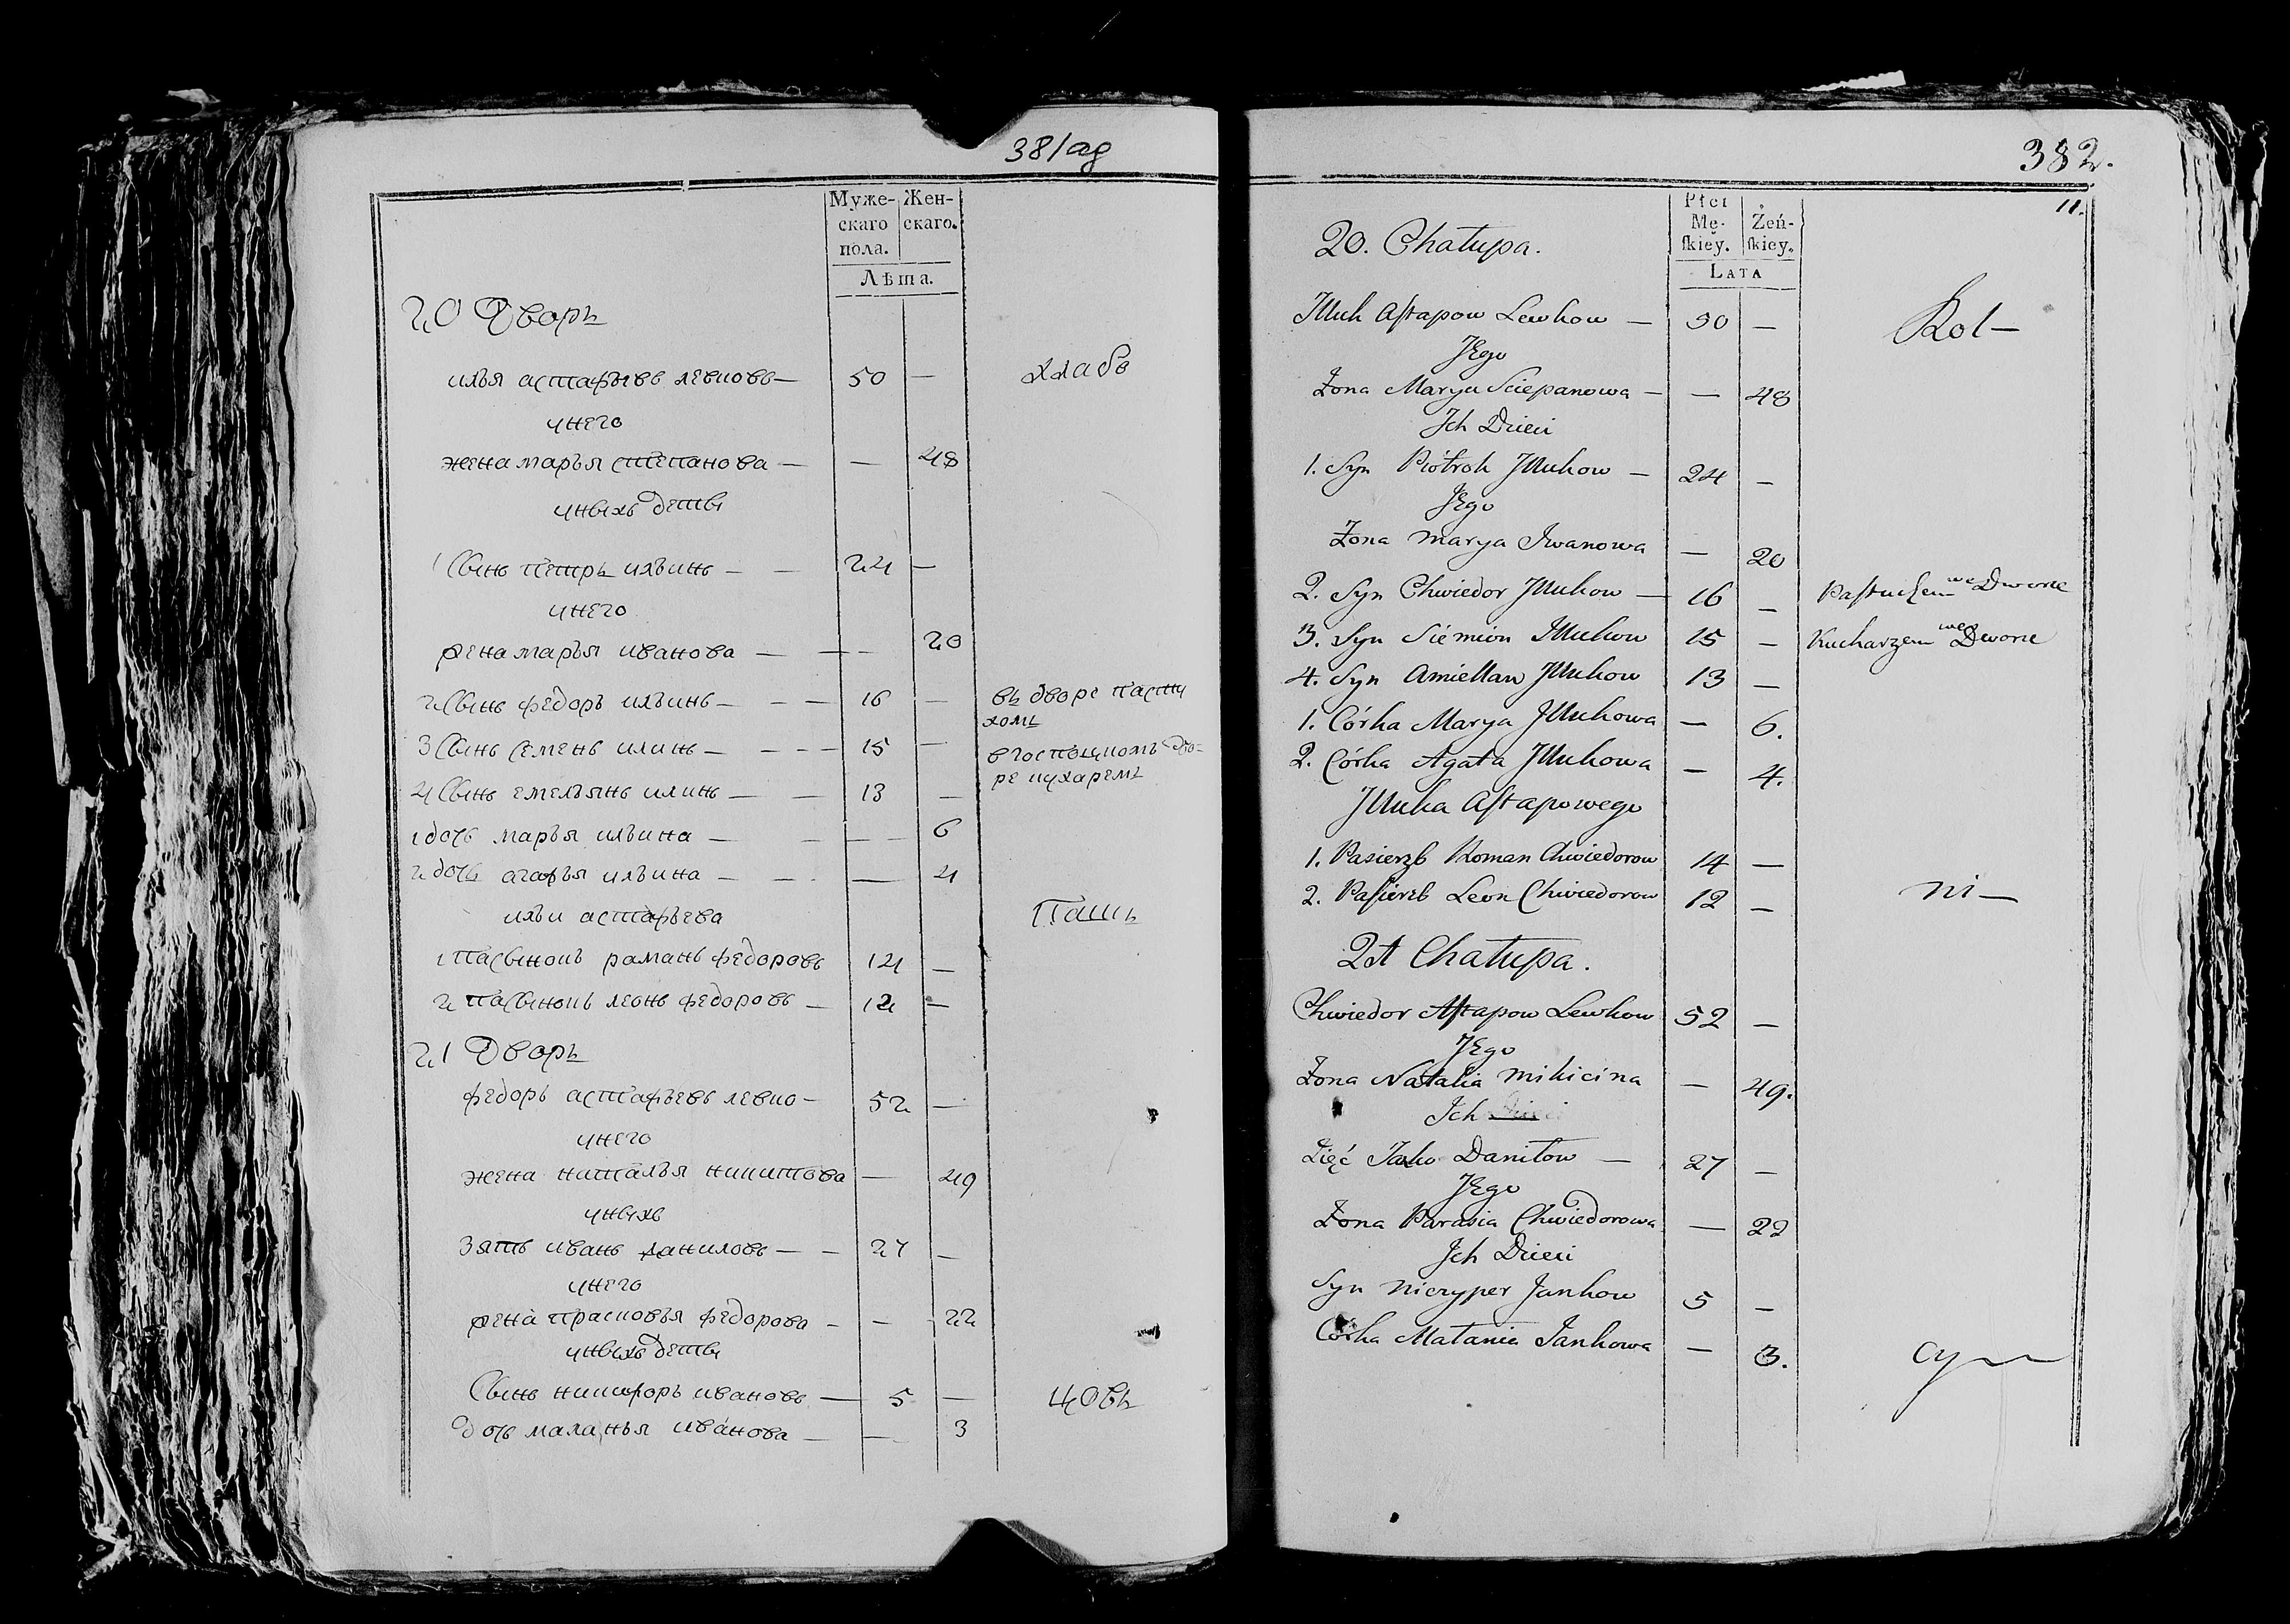 381 ag
Муже-
скаго
пола.
Жен-
скаго.
Лѣта.
20 Дворъ
илья астафьевъ левковъ — 50 —
унего
жена марья степанова — — 48
уныхъ деты
1 Сынъ петръ ильинъ — — 24 —
унего
жена марья иванова — — 20
2 Сынъ федоръ ильинъ — — — 16 — въ дворе пасту
хомъ
3 Сынъ семенъ илинъ — — — — 15 — в господскомъ дво-
ре кухаремъ
4 Сынъ емельянъ илинъ — — 13 —
1 дочь марья ильина — — — 6
2 дочь агафья ильина — — — 4
ильи астафьева
1 пасынокъ раманъ федоровъ 14 —
2 пасынокъ леонъ федоровъ — 12 —
21 Дворъ
федоръ астафьевъ левко — 52 —
унего
жена наталья никитова — 49
уныхъ
Зять иванъ даниловъ — — 27 —
унего
жена прасковья федорова — — 22
уныхъ деты
Сынъ никифоръ ивановъ — 5 — цовъ
дочь маланья иванова — — 3
382.
11.
Płci
Mę-
skiey.
Żeń-
skiey.
LATA
20. Chałupa.
Illuk Astapow Lewkow — 50 — Kol —
JEgo
Żona Marya Sciepanowa — — 48
Jch Dzieci
1. Syn Piótrok Illukow — 24 —
JEgo
Żona Marya Iwanowa — 20
2. Syn Chwiedor Illukow — 16 — Pastuchem we Dworze
3. Syn Siemion Illukow 15 — Kucharzem we Dworze
4. Syn Amiellan Illukow 13 —
1. Córka Marya Illukowa — 6.
2. Córka Agata Illukowa — 4.
Illuka Astapowego
1. Pasierzb Roman Chwiedorow 14 —
2. Pasierzb Leon Chwiedorow 12 — ni —
21 Chałupa.
Chwiedor Astapow Lewkow 52 —
JEgo
Żona Natalia Mikicina — 49.
Jch
Zięć Jako Daniłow — 27 —
JEgo
Żona Parasia Chwiedorowa — 22
Jch Dzieci
Syn Niczyper Jankow 5 —
Córka Matania Jankowa — 3. cy